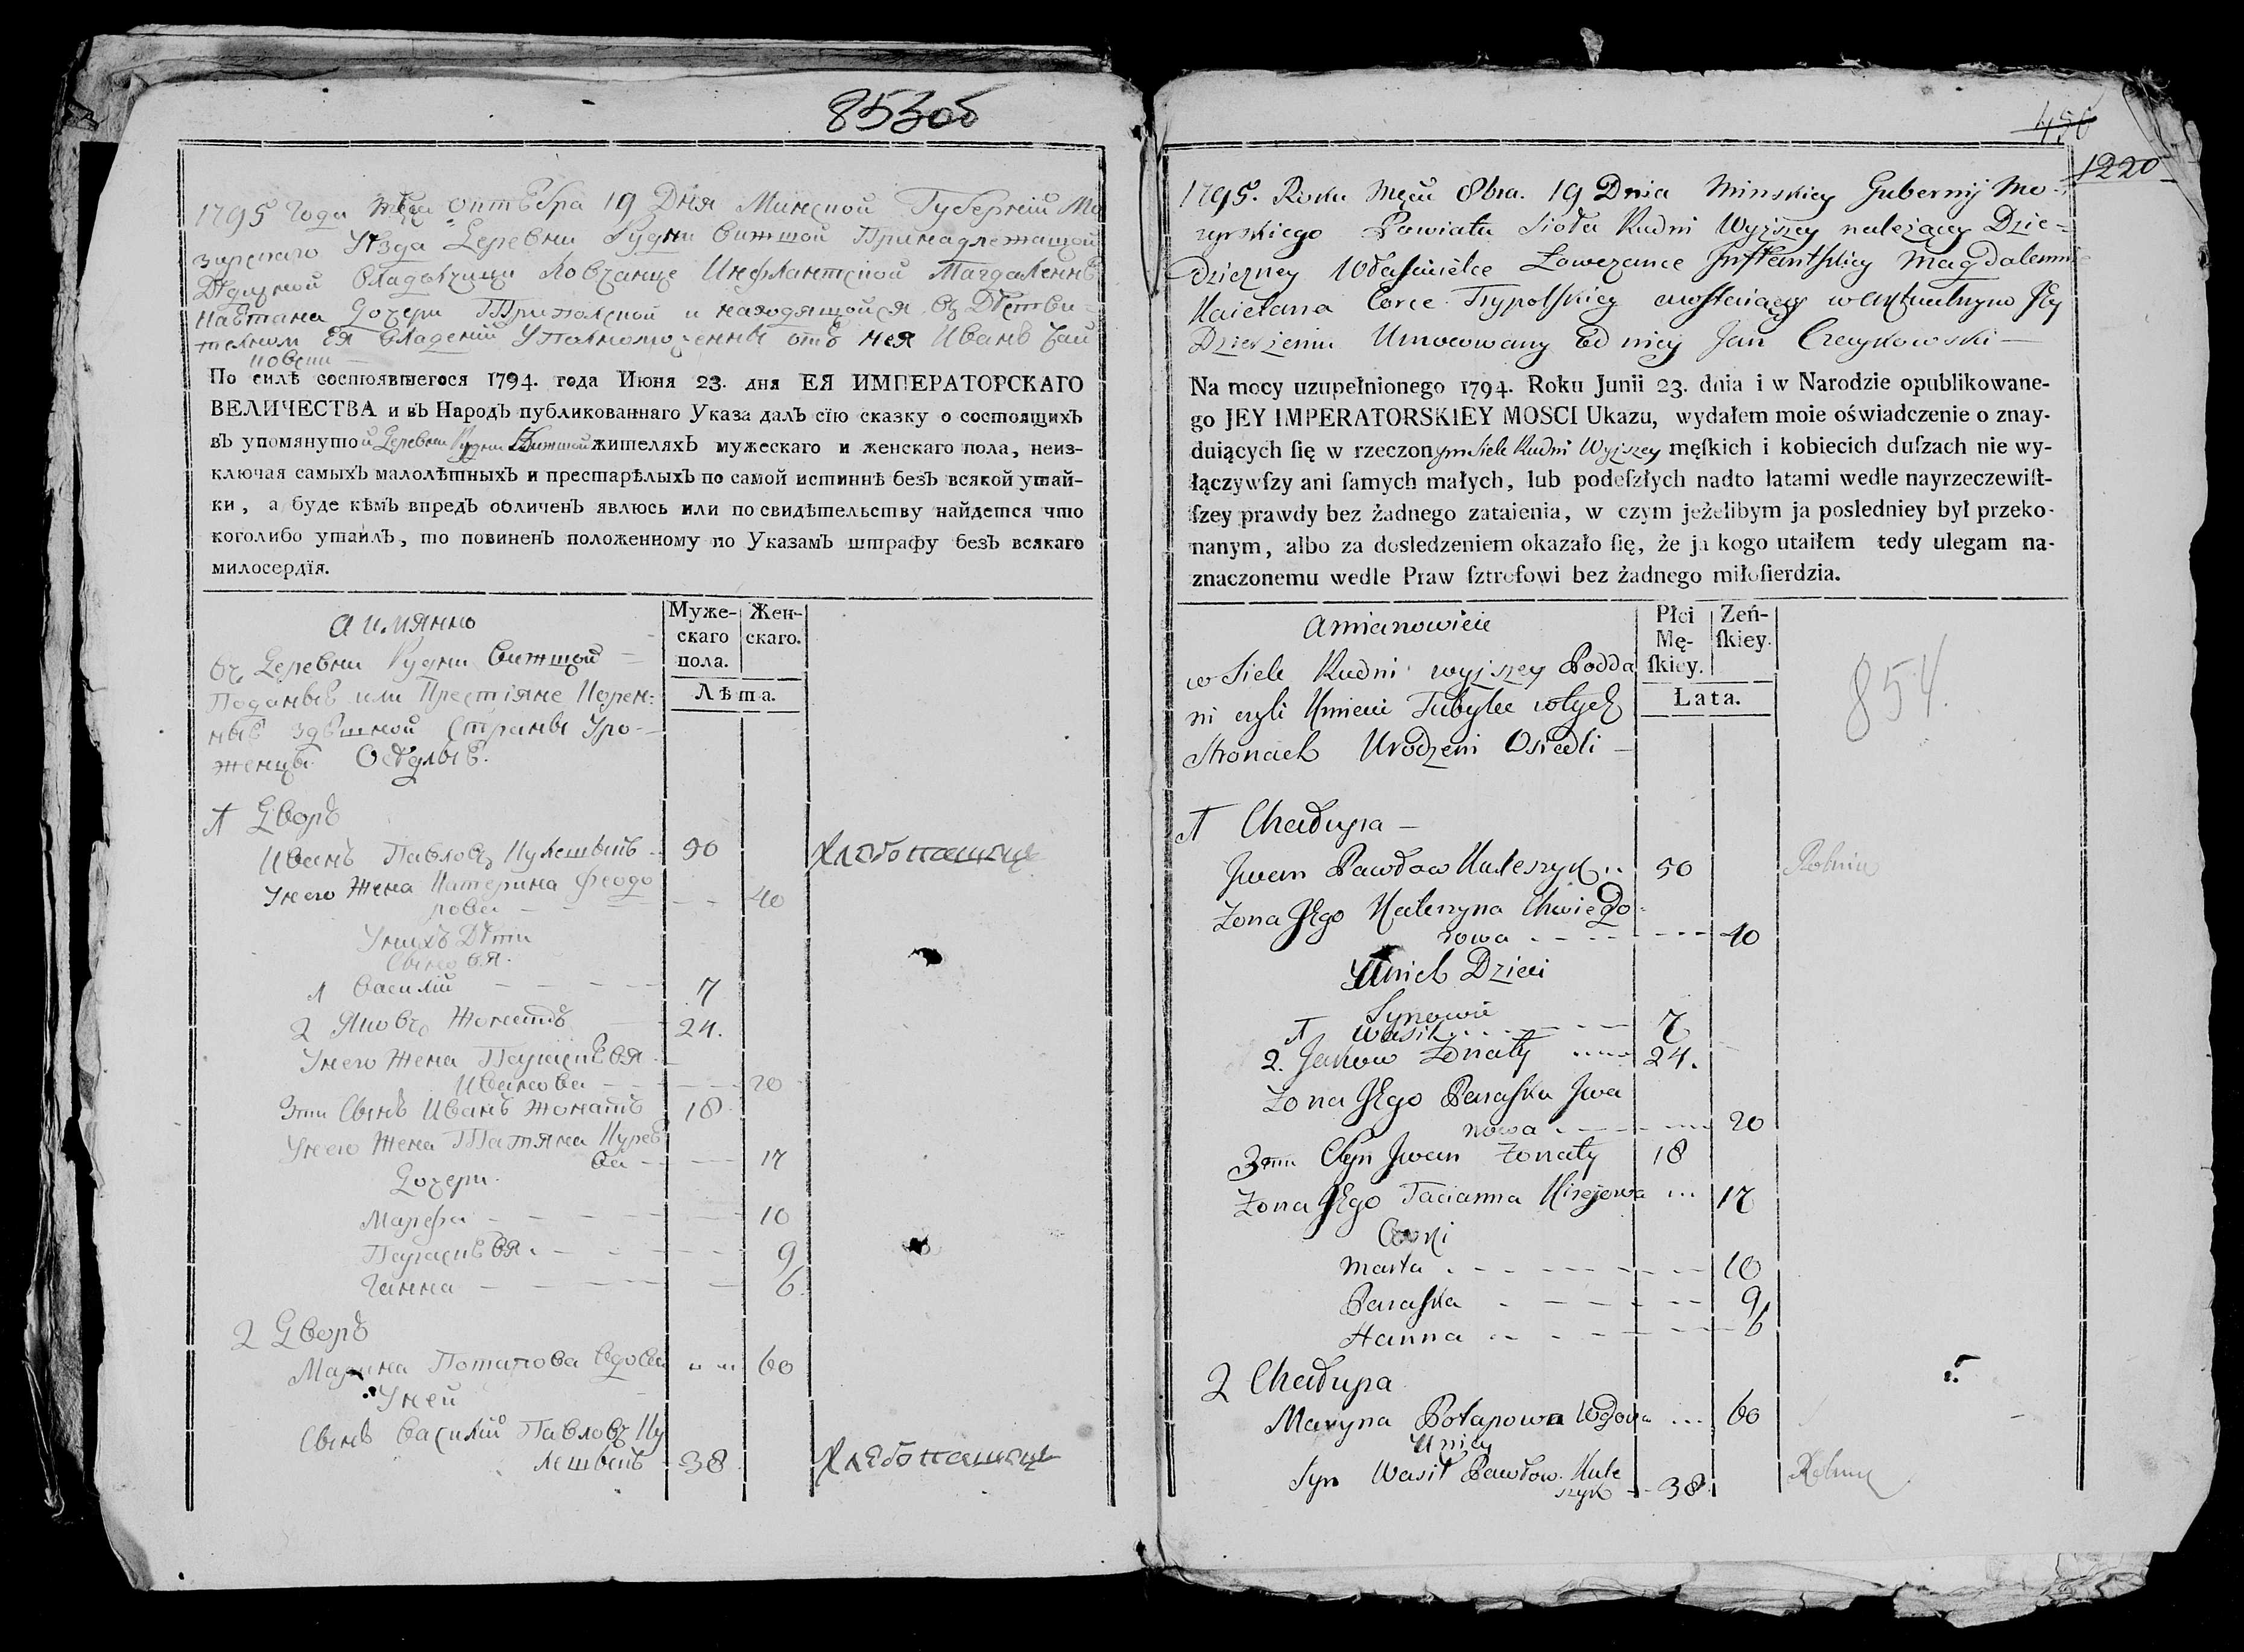 853об
1795 года мца октебра 19 Дня Минской Губернїи Мо
зирскаго Уезда Деревни Рудни Вижшой Принадлежащой
Дедичной Владычици Ловчанце Инфлантской Магдаленне
Каетана Дочери Трипольской и находящойся въ Действи-
телном Ея владении Уполномоченны отъ нея Иванъ Чай
ковски
По силѣ состоявшегося 1794. года Июня 23. дня ЕЯ ИМПЕРАТОРСКАГО
ВЕЛИЧЕСТВА и въ Народъ публикованнаго Указа далъ сїю сказку о состоящихъ
въ упомянутой Деревни Рудни Вижшой жителяхъ мужескаго и женскаго пола, неиз-
ключая самыхъ малолѣтныхъ и престарѣлыхъ по самой истиннѣ безъ всякой утай-
ки, а буде кѣмъ впредъ обличенъ явлюсь или по свидѣтельству найдется что
коголибо утаилъ, то повиненъ положенному по Указамъ штрафу безъ всякаго
милосердїя.
а имянно
Муже-
скаго
пола.
Жен-
скаго.
Лѣта.
въ Деревни Рудни Вижшой
Поданые или Крестїяне Корен-
ные здешной Страны Уро-
женцы Оседлые.
1 Дворъ
Иванъ Павловъ Кулешыкъ 90 Хлебопашецъ
У него Жена Катерина Феодо
рова 40
У нихъ Дети
Сыновя.
1 Василий 7
2 Яковъ Жонатъ 24.
У него Жена Параскевя
Иванова 20
3ти Сынъ Иванъ Жонатъ 18
У него Жена Татяна Кирее
ва 17
Дочери
Марфа 10
Параскевя 9
Ганна 6
2 Дворъ
Марина Потапова вдова 60
У ней
Сынъ Василий Павловъ Ку
лешыкъ 38 Хлебопашецъ
456
1220
1795. Roku Mcа 8bra. 19 Dnia Minskiey Gubernij Mo-
zyrskiego Powiatu Sioła Rudni Wyższey należącey Dzie-
dziczney Właścicielce Łowczance Inflantskiey Magdalennie
Kaietana Corce Trypolskiey w aktualnym Jey
Dzierżeniu Umocowany od niey Jan Czaykowski
Na mocy uzupełnionego 1794. Roku Junii 23. dnia i w Narodzie opublikowane-
go JEY IMPERATORSKIEY MOSCI Ukazu, wydałem moie oświadczenie o znay-
duiących ſię w rzeczonym Siele Rudni Wyższey męſkich i kobiecich duſzach nie wy-
łączywſzy ani ſamych małych, lub podeſzłych nadto latami wedle nayrzeczewiſt-
ſzey prawdy bez żadnego zataienia, w czym jeżelibym ja posledniey był przeko-
nanym, albo za dosledzeniem okazało ſię, że ja kogo utaiłem tedy ulegam na-
znaczonemu wedle Praw ſztrofowi bez żadnego miłoſierdzia.
Amianowicie
Płci
Mę-
ſkiey.
Zeń-
ſkiey.
Lata.
w Siele Rudni wyższey Podda
ni czyli Kmiecie Tubylce w tych
Stronach Urodzeni Osiedli
854.
1 Chałupa
Jwan Pawłow Kuleszyk 50 Rolnik
Zona Jego Katerzyna Chwiedo-
rowa 40
U nich Dzieci
Synowie
1 Wasil 7
2. Jakow Zonaty 24.
Zona Jego Paraſka Jwa
nowa 20
3ти Syn Jwan Zonaty 18
Zona Jego Tacianna Kirejewa 17
Corki
Marta 10
Paraſka 9
Hanna 6
2 Chałupa
Maryna Potapowa Wdowa 60
U niey
Syn Wasil Pawłow Kule
szyk 38 Rolnik